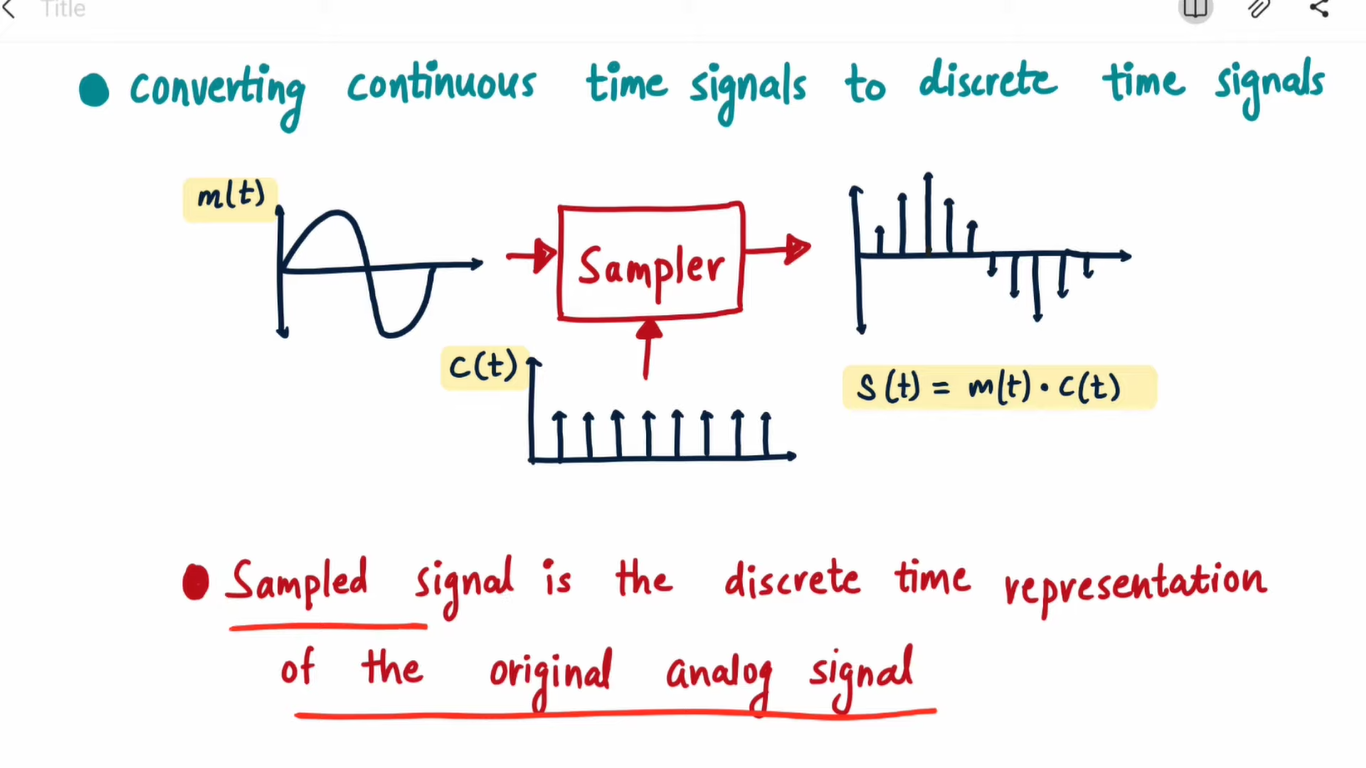 Title
converting continuous time signals to discrete time signals
m(t)
Sampler
c(t)
s(t) = m(t) · c(t)
Sampled signal is the discrete time representation
of the original analog signal